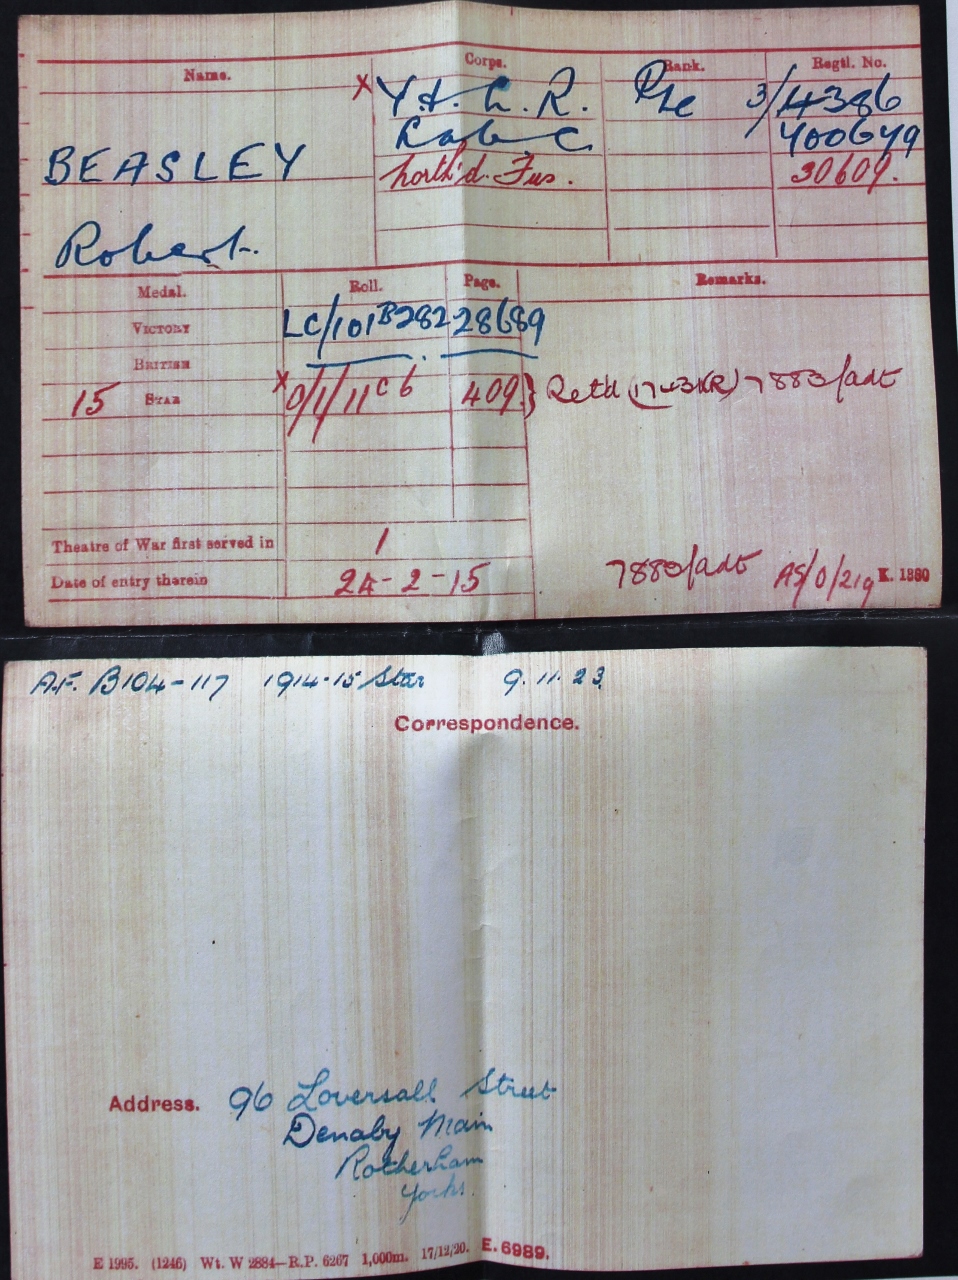 Name.
Corps.
Rank.
Regtl. No.
X Y. & L. R. Pte 3/4386
Lab C 400649
BEASLEY North'd. Fus. 30609.
Robert.
Medal. Roll. Page. Remarks.
VICTORY LC/101B282 28689
BRITISH
15 STAR X 0/1/11C6 409.} Retd (1743KR) 7883/adt
Theatre of War first served in 1
Date of entry therein 24-2-15
7880/adt AS/0/219 K. 1380
A.F. B104-117 1914-15 Star 9.11.23
Correspondence.
Address. 96 Loversall Street
Denaby Main
Rotherham
Yorks.
E 1995. (1246) Wt. W 2884—R.P. 6267 1,000m. 17/12/20. E.6989.